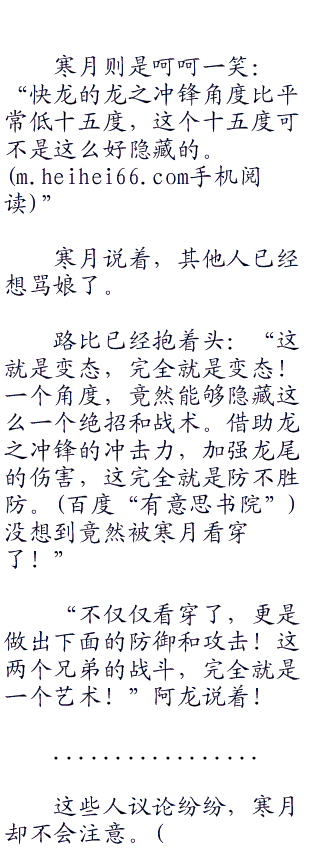 寒月则是呵呵一笑：
“快龙的龙之冲锋角度比平
常低十五度，这个十五度可
不是这么好隐藏的。
(m.heihei66.com手机阅
读)”
寒月说着，其他人已经
想骂娘了。
路比已经抱着头：“这
就是变态，完全就是变态！
一个角度，竟然能够隐藏这
么一个绝招和战术。借助龙
之冲锋的冲击力，加强龙尾
的伤害，这完全就是防不胜
防。(百度“有意思书院”)
没想到竟然被寒月看穿
了！”
“不仅仅看穿了，更是
做出下面的防御和攻击！这
两个兄弟的战斗，完全就是
一个艺术！”阿龙说着！
.................
这些人议论纷纷，寒月
却不会注意。(